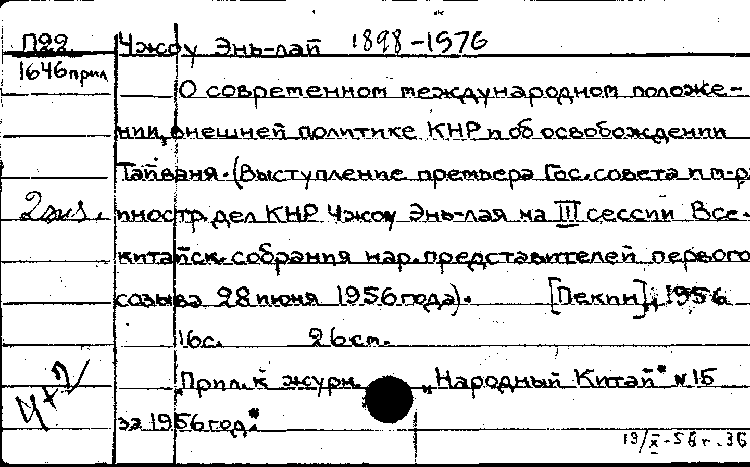 П22 Чжоу Энь-лай 1898-1976
1646 прил
О современном международном положе-
нии, внешней политике КНР и об освобождении
Тайваня. (Выступление премьера Гос. совета и м-ра
2 экз. иностр. дел КНР Чжоу Энь-лая на III сессии Все-
китайск. собрания нар. представителей первого
созыва 28 июня 1956 года). [Пекин], 1956
16 с. 26 см.
4+2 „Прил. к журн. „Народный Китай" № 15
за 1956 год."
19/X-56 г.